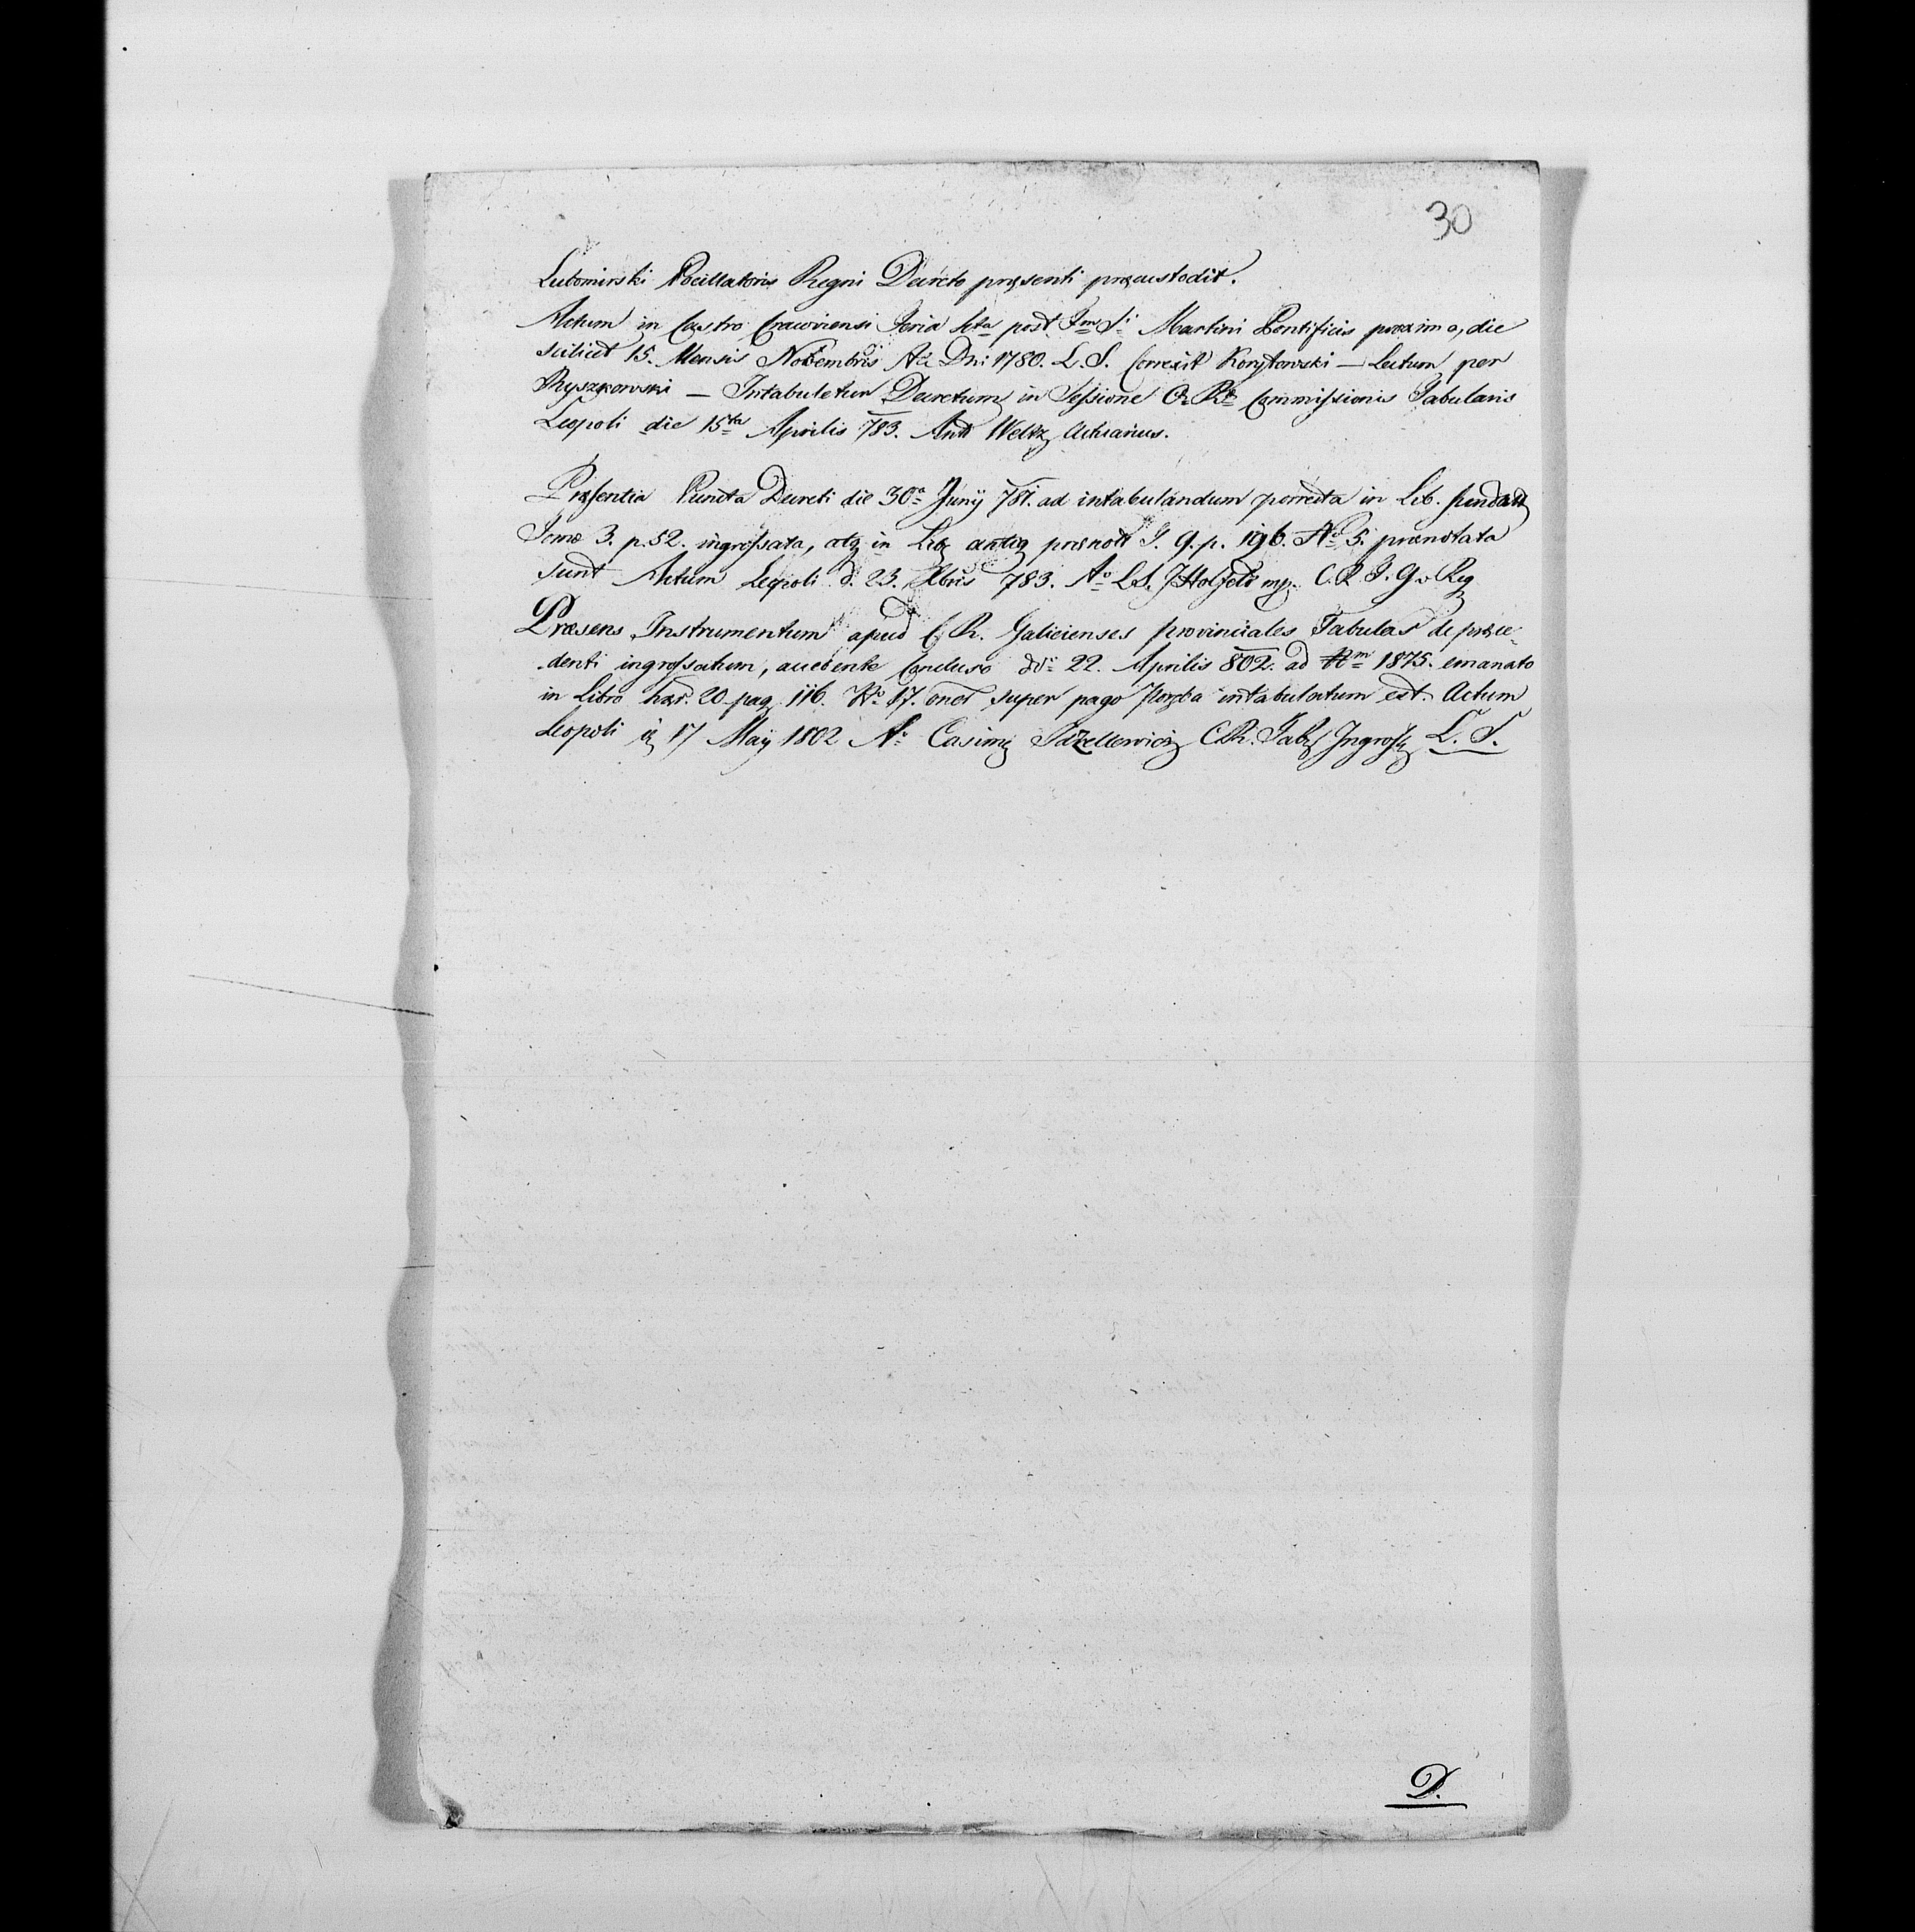 30
Lubomirski Pocillatoris Regni Decreto præsenti præcustodit.
Actum in Castro Cracoviensi Feria 4ta post Fm Si Martini Pontificis proxima, die
scilicet 15. Mensis Novembris Ao Dni 1780. L. S. Correxit Korytowski — Lectum per
Ryszkowski — Intabuletur Decretum in Sessione C. R. Commissionis Tabularis
Leopoli die 15ta Aprilis 783. Ant Weltz Actuarius.
Præsentia Puncta Decreti die 30a Junÿ 781. ad intabulandum porrecta in Lib. fundat
Tomo 3. p. 52. ingrossata, atq in Lib antiq prænott T. 9. p. 196. No 5. prænotata
sunt Actum Leopoli d. 23. Xbris 783. Ao L.S. J Holfeld mp. C. R. T. G. Reg
Præsens Instrumentum apud C. R. Galicienses provinciales Tabulas de præce-
denti ingrossatum, accedente Concluso ddo 22. Aprilis 802. ad Nm 1875. emanato
in Libro hær. 20 pag. 116. No 17. oner super pago Poręba intabulatum est. Actum
Leopoli 17 Maÿ 1802 Casim C.R. Tab Ingross L. S.
D.